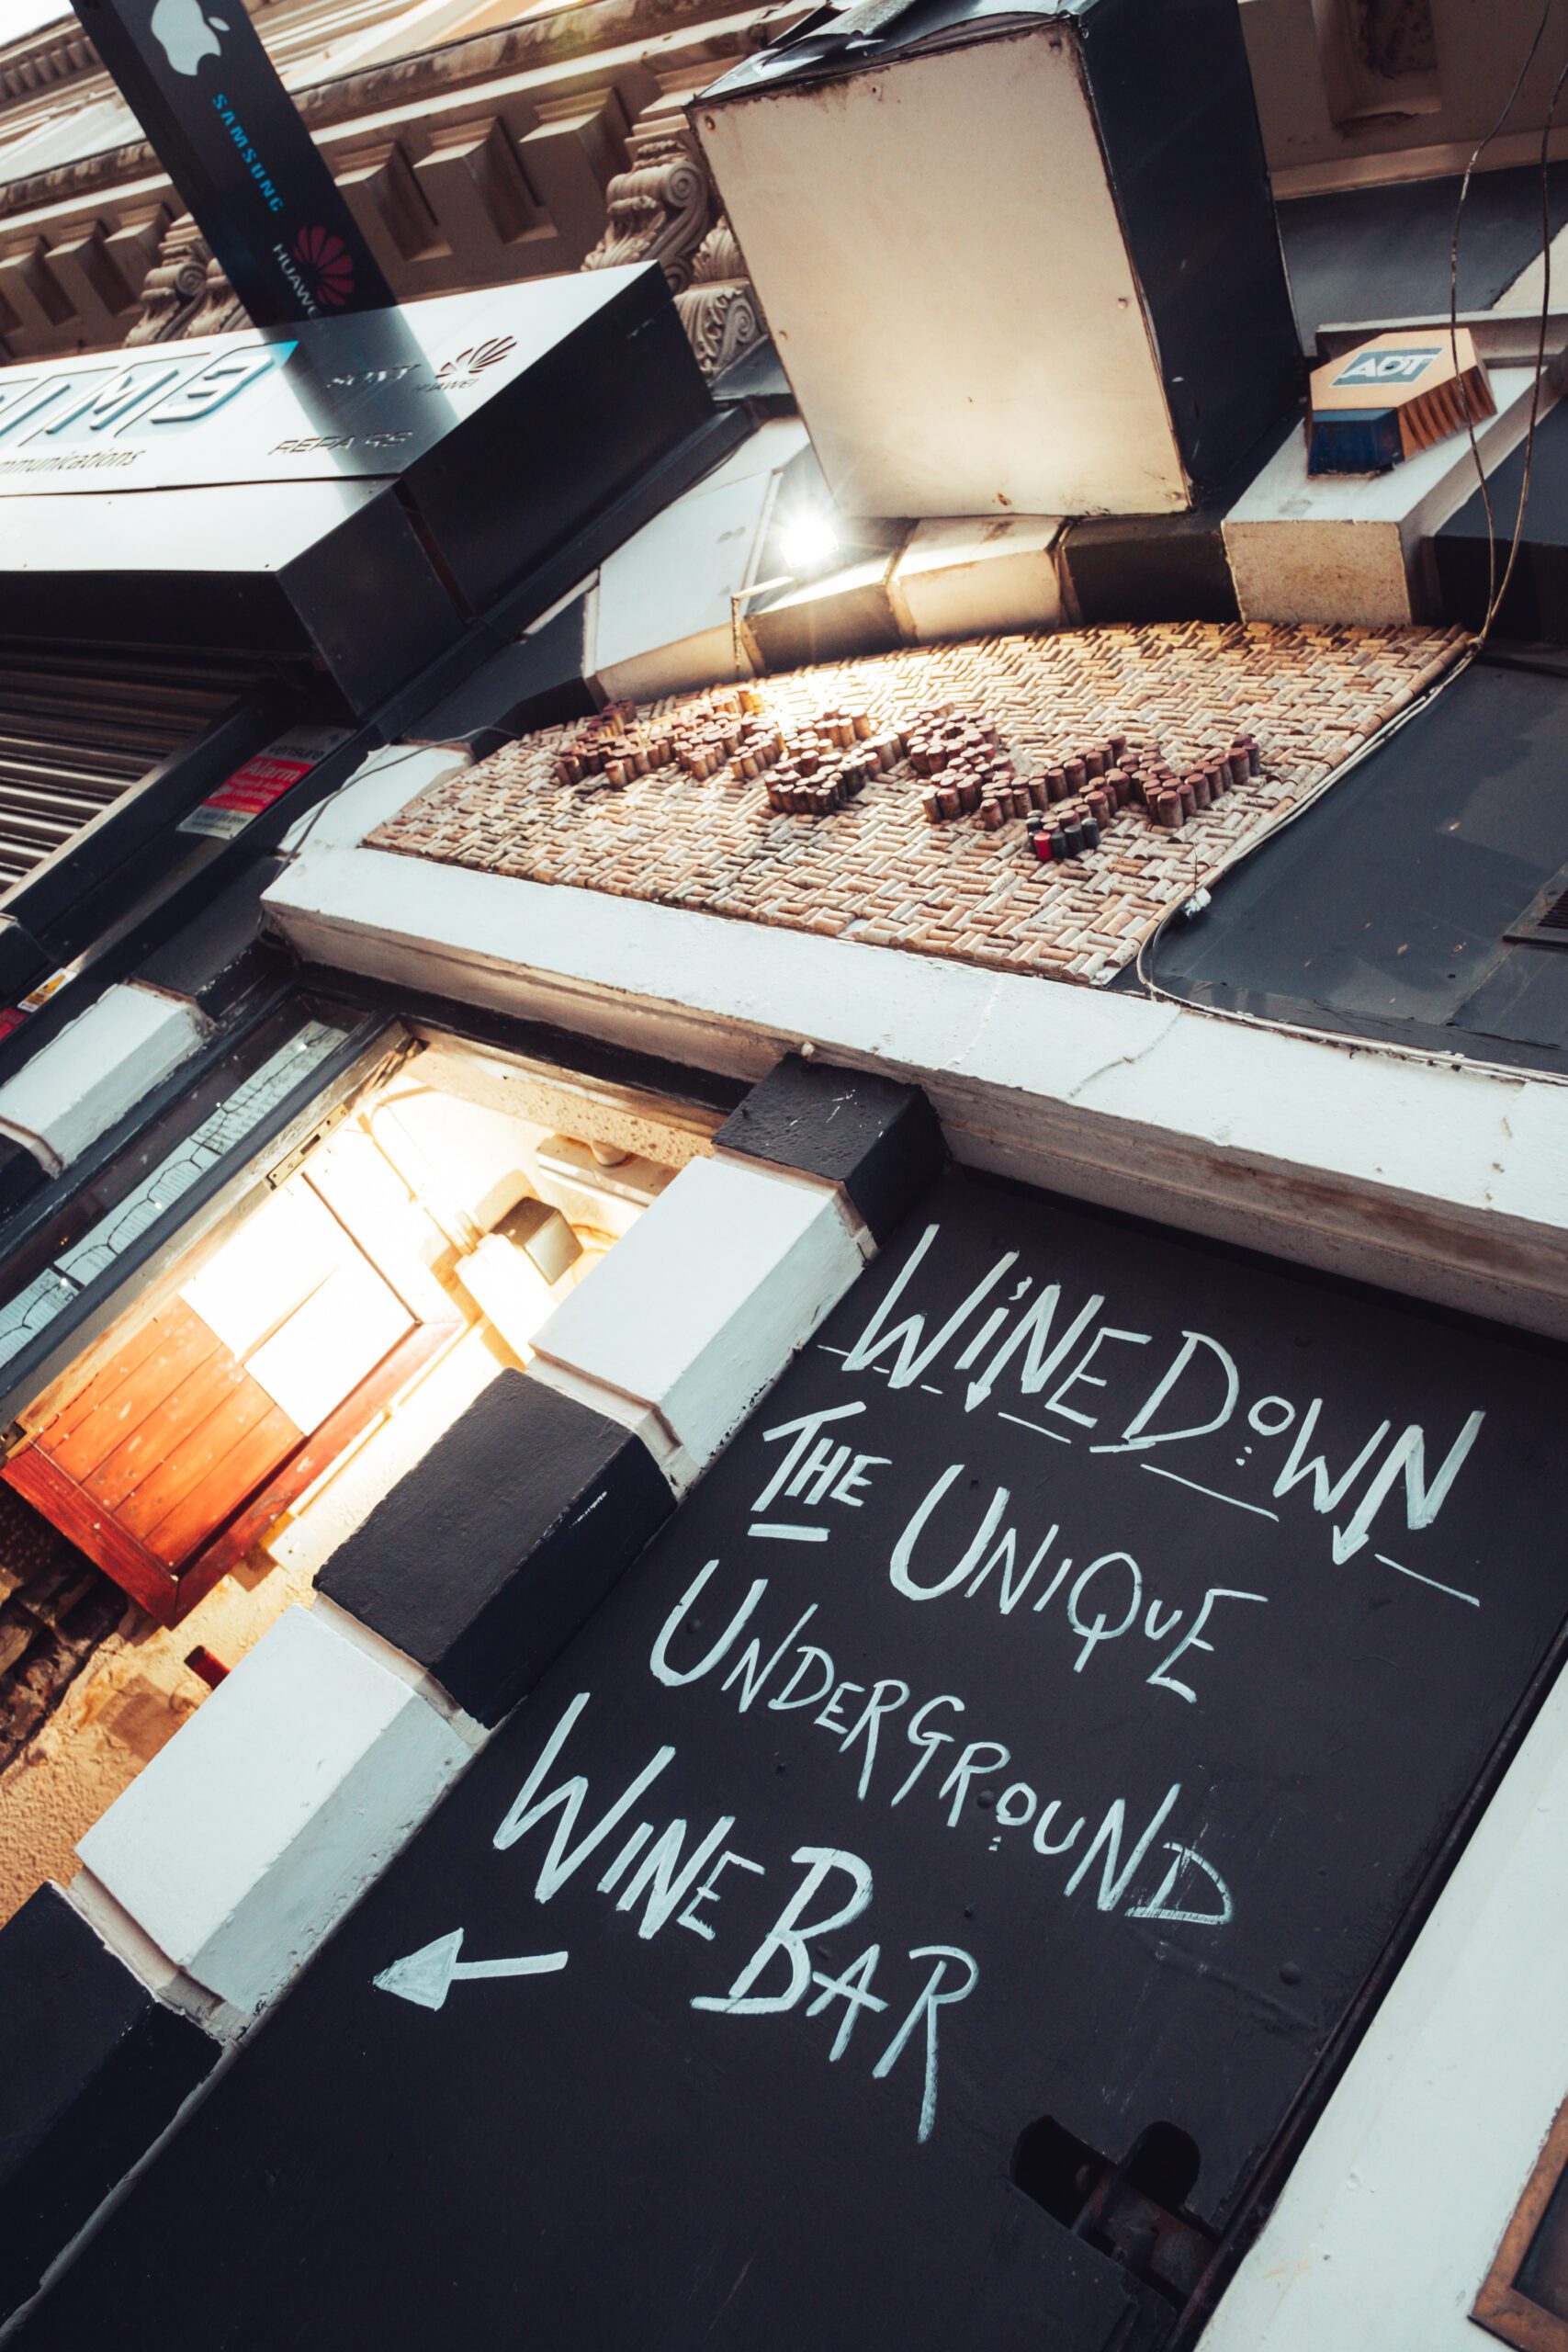 SAMSUNG
HUAWEI
SONY
HUAWEI
REPAIRS
ADT
Alarm
WINE DOWN
THE UNIQUE
UNDERGROUND
WINE BAR